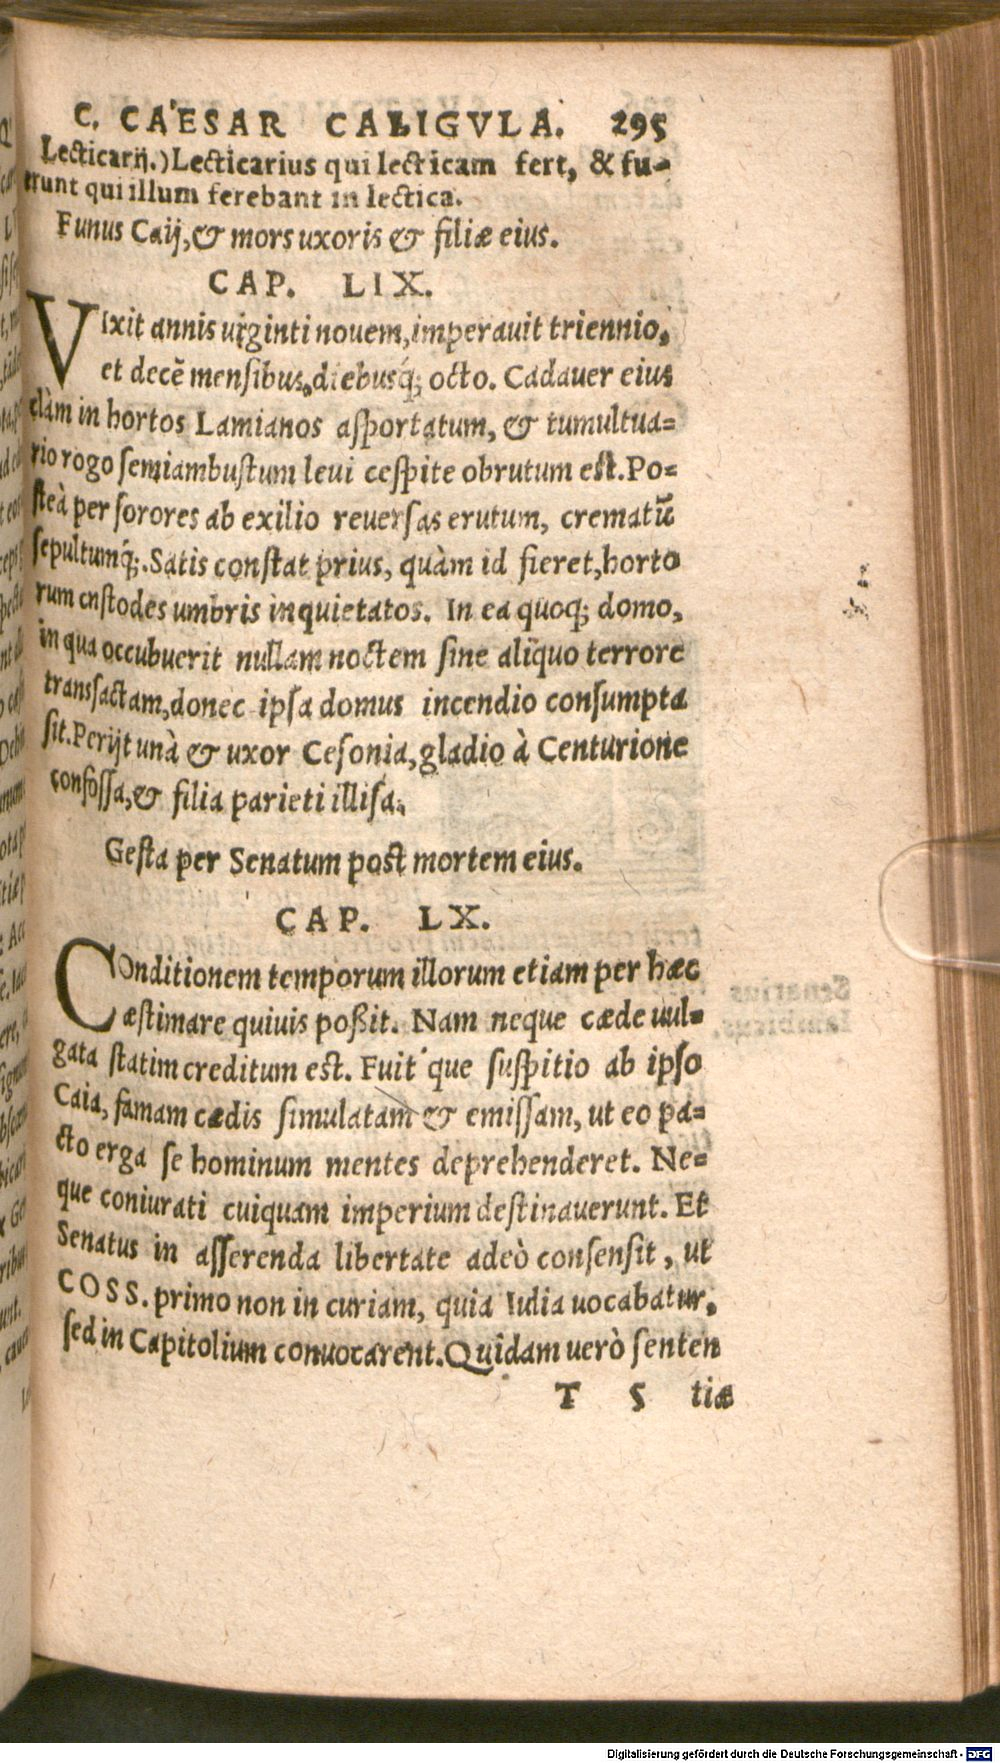 C. CAESAR CALIGVLA. 295
Lecticarij.) Lecticarius qui lecticam fert, & fu-
erunt qui illum ferebant in lectica.
Funus Caij, & mors uxoris & filiæ eius.
CAP. LIX.
VIxit annis uiginti nouem, imperauit triennio,
et decẽ mensibus, diebusq́; octo. Cadauer eius
clàm in hortos Lamianos asportatum, & tumultua-
rio rogo semiambustum leui cespite obrutum est. Po-
steà per sorores ab exilio reuersas erutum, crematũ
sepultumq́;. Satis constat prius, quàm id fieret, horto
rum cnstodes umbris inquietatos. In ea quoq; domo,
in qua occubuerit nullam noctem sine aliquo terrore
transsactam, donec ipsa domus incendio consumpta
sit. Perijt unà & uxor Cesonia, gladio à Centurione
confossa, & filia parieti illisa.
Gesta per Senatum post mortem eius.
CAP. LX.
COnditionem temporum illorum etiam per hæc
æstimare quiuis poßit. Nam neque cæde uul-
gata statim creditum est. Fuit'que suspitio ab ipso
Caia, famam cædis simulatam & emissam, ut eo pa-
cto erga se hominum mentes deprehenderet. Ne-
que coniurati cuiquam imperium destinauerunt. Et
Senatus in asserenda libertate adeò consensit, ut
COSS. primo non in curiam, quia Iulia uocabatur,
sed in Capitolium conuocarent. Quidam uerò senten
T 5 tiæ
Digitalisierung gefördert durch die Deutsche Forschungsgemeinschaft - DFG